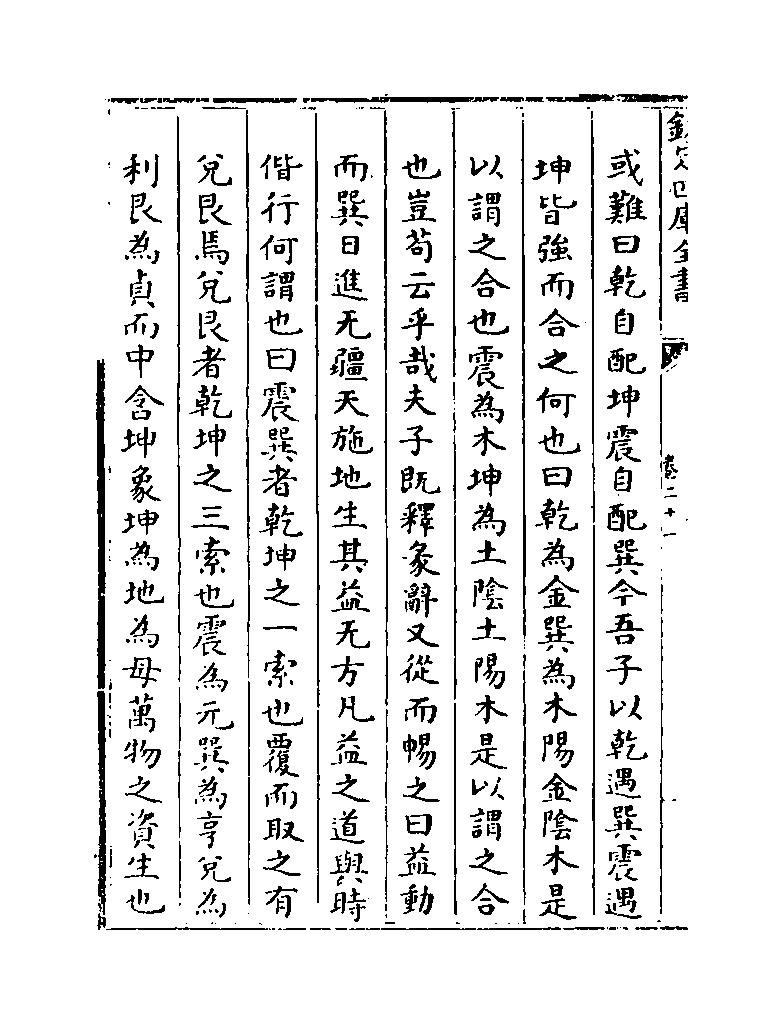 欽定四庫全書
卷二十一
或難曰乾自配坤震自配巽今吾子以乾遇巽震遇
坤皆強而合之何也曰乾為金巽為木陽金陰木是
以謂之合也震為木坤為土陰土陽木是以謂之合
也豈茍云乎哉夫子既釋彖辭又從而暢之曰益動
而巽日進无疆天施地生其益无方凡益之道與時
偕行何謂也曰震巽者乾坤之一索也覆而取之有
兌艮焉兌艮者乾坤之三索也震為元巽為亨兌為
利艮為貞而中含坤象坤為地為母萬物之資生也